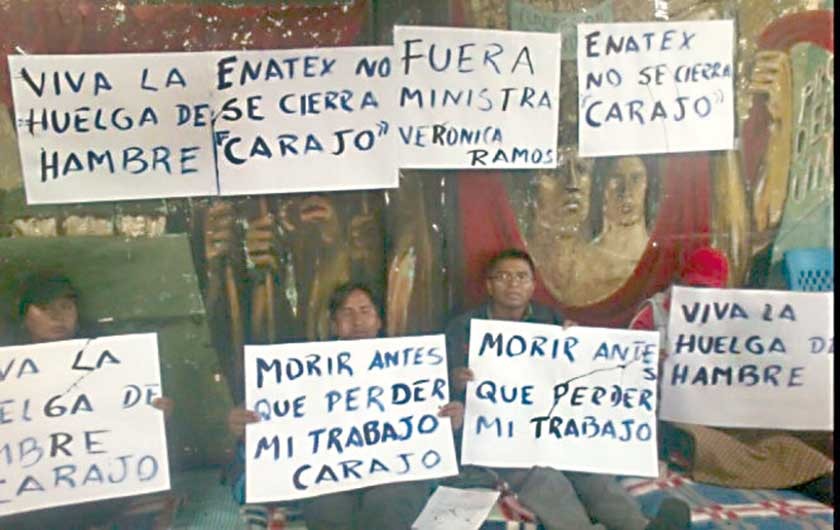 VIVA LA
HUELGA DE
HAMBRE
ENATEX NO
SE CIERRA
"CARAJO"
FUERA
MINISTRA
VERONICA
RAMOS
ENATEX
NO SE CIERRA
"CARAJO"
VA LA
ELGA DE
MBRE
CARAJO
MORIR ANTES
QUE PERDER
MI TRABAJO
CARAJO
MORIR ANTES
QUE PERDER
MI TRABAJO
VIVA LA
HUELGA D
HAMBRE